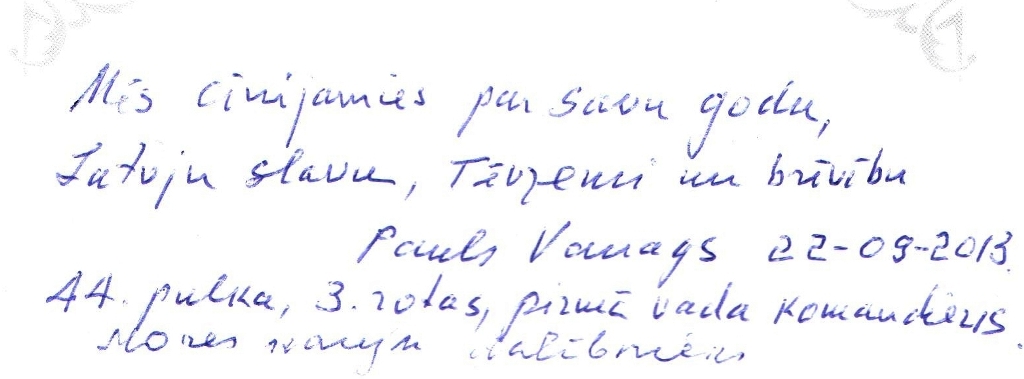 Mēs cīnijamies par savu godu,
Latvju slavu, Tēvzemi un brīvību
Pauls Vanags 22-09-2013.
44. pulka, 3. rotas, pirmā vada komandieris.
Mores kauju dalībnieks